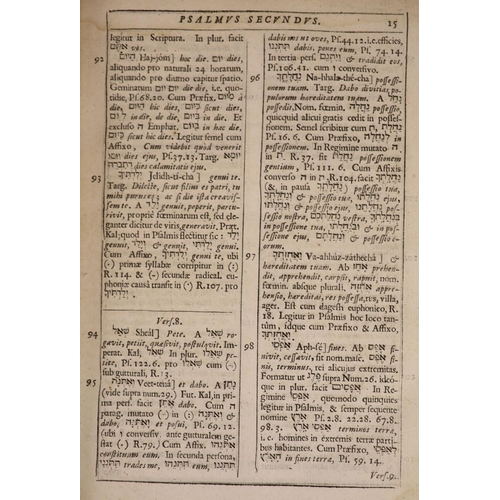 PSALMVS SECVNDVS. 15
legitur in Scriptura. In plur. facit
אַתֶּם vos.
92 הַיּוֹם Haj-jóm] hoc die. יוֹם dies,
aliquando pro naturali 24 horarum,
aliquando pro diurno capitur spatio.
Geminatum יוֹם יוֹם die die, i.e. quo-
tidie, Ps.68.20. Cum Præfix. בְּיוֹם à
die, הַיּוֹם hic dies, כְּיוֹם sicut dies,
in die, de die, in die, de die. Et
excluso ה Emphat. in die, in hac die,
sicut hæc dies. Legitur semel cum
Affixo, Cum videbat quòd veneris
dies ejus, Ps.37.13. Targ. יוֹמָא
dies calamitatis ejus.
93 Jelidh-tí-chá] genui te.
Targ. Dilecte, sicut filius es patri, tu
mihi purus; ac si die ista creavis-
sem te. A יָלַד genuit, peperit, partu-
rivit, propriè fœminarum est, sed ele-
ganter dicitur de viris, generavit, Præt.
Kal, quod in Psalmis flectitur sic:
genuit, & genui, genuisti.
Cum Affixo, genui te, ubi
(·) primæ syllabæ corripitur in (:)
R.114. & (-) secundæ radical. eu-
phoniæ causâ transit in (·) R.107. pro
יְלִדְתִּיךָ
Vers.8.
94 שְׁאַל Sheál] Pete. A שָׁאַל ro-
gavit, petiit, quæsivit, postulavit. Im-
perat. Kal; In plur. שַׁאֲלוּ pe-
tite, Ps.122.6. pro שְׁאֲלוּ cum (-)
sub gutturali, R.13.
95 וְאֶתְּנָה Veet-tená] et dabo. A נָתַן
(vide supra num.29.) Fut. Kal, in pri-
ma pers. facit אֶתֵּן dabo. Cum ה
parag. mutato (··) in (:) וְאֶתְּנָה &
dabo, et posui, Ps.69.12.
(ubi ו conversiv. ante gutturalem ge-
stat (·) R.79.) Cum Affix.
constituum eum. In secunda persona,
trades me, trades eum,
dabis nos ut oves, Ps.44.12. i.e. efficies,
dabis, pones eum, Ps. 74.14.
In tertia pers. & tradidit eos,
Ps.106.41. cum ו conversivo.
96 Na-hhala-thé-cha] possessi-
onem tuam. Targ. Dabo divitias, po-
pulorum hæreditatem tuam. A נָחַל
possedit. Nom. fœmin. נַחֲלָה possessio,
quicquid alicui gratis cedit in posses-
sionem. Semel scribitur cum ת
Ps.16.6. Cum Præfixo, in
possessionem. In Regimine mutato ה
in ת R.37. fit נַחֲלַת possessionem
gentium, Ps.111.6. Cum Affixis
converso ה in ת R.104. facit
(& in pausâ possessio tua,
& possessio tua,
possessio ejus, & possessio ejus, pos-
sessio nostra, vestra,
in possessione tua, & in pos-
sessione ejus, & possessio e-
orum.
97 וַאֲחֻזָּתְךָ Va-ahhúz-záthechá] &
hæreditatem tuam. Ab אָחַז prehen-
dit, apprehendit, carpsit, rapuit, nom.
fœmin. absque plurali, אֲחֻזָּה appre-
hensio, hæreditas, res possessa, rus, villa,
ager. Est cum dagesh euphonico, R.
18. Legitur in Psalmis hoc loco tan-
tùm, idque cum Præfixo & Affixo,
וַאֲחֻזָּתְךָ
98 אַפְסֵי Aph-sé] fines. Ab אָפֵס fi-
nivit, cessavit, fit nom. masc. אֶפֶס fi-
nis, terminus, rei alicujus extremitas.
Formatur ut מֶלֶךְ supra Num.26. ideo-
que in plur. facit אֲפָסִים In Re-
gimine אַפְסֵי quomodo quinquies
legitur in Psalmis, & semper sequente
nomine אָרֶץ Ps.2.8. 22.28. 67.8.
98.3. אַפְסֵי אָרֶץ termini terræ,
i.e. homines in extremis terræ parti-
bus habitantes. Cum Præfixo
in fines terræ, Ps. 59.14.
Vers.9.